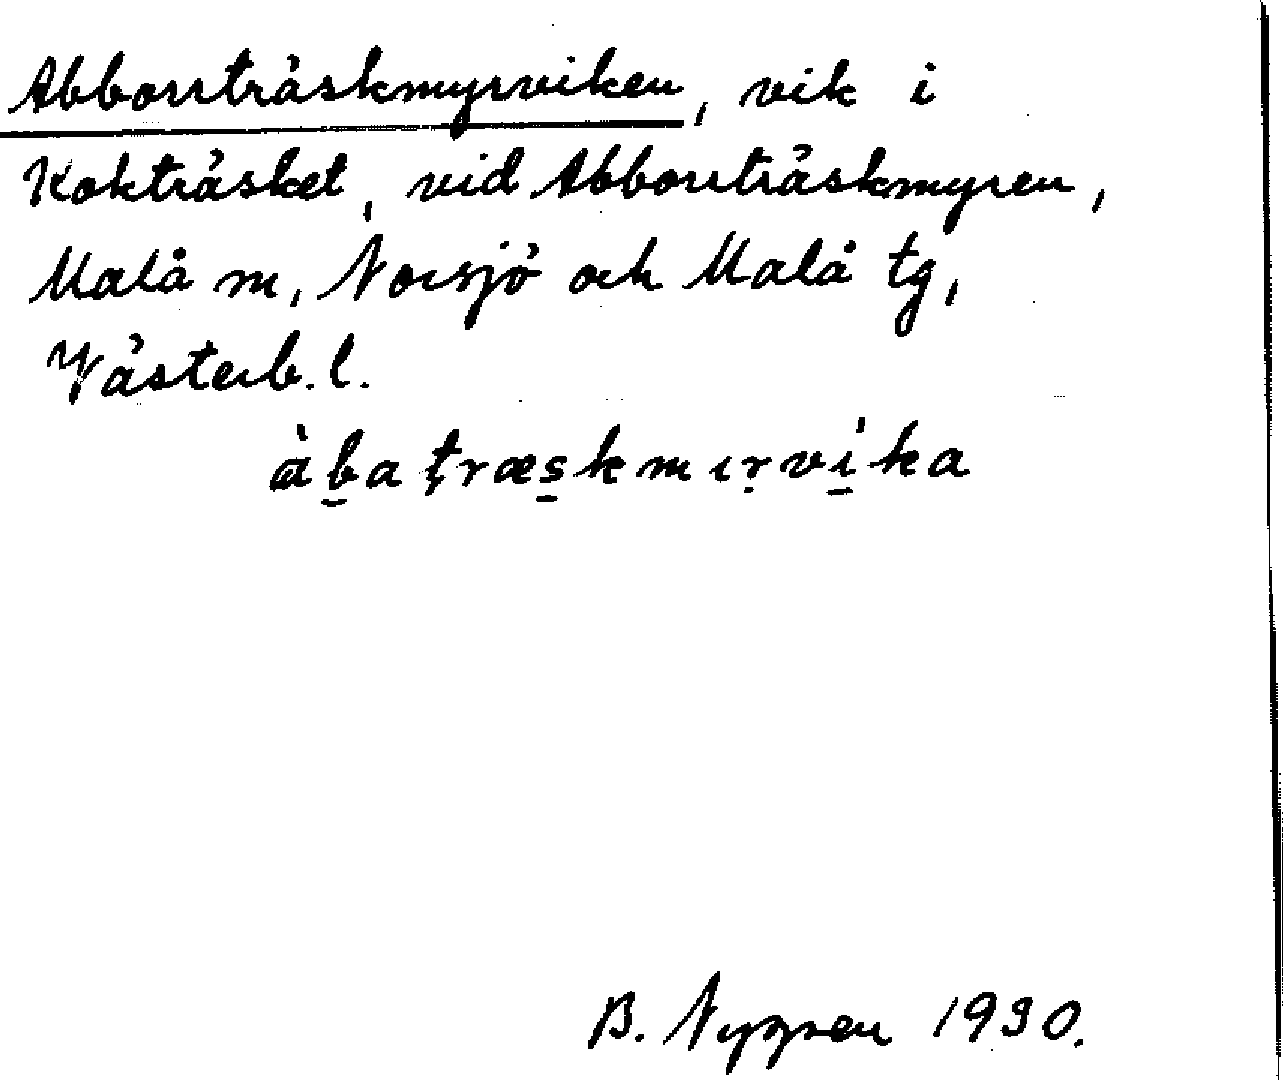 Abborrträskmyrviken, vik i
Kokträsket, vid Abborrträskmyren,
Malå sn, Norsjö och Malå tg,
Västerb. l.
àb̠atræs̠kmırvi̠ka
B. Nygren 1930.